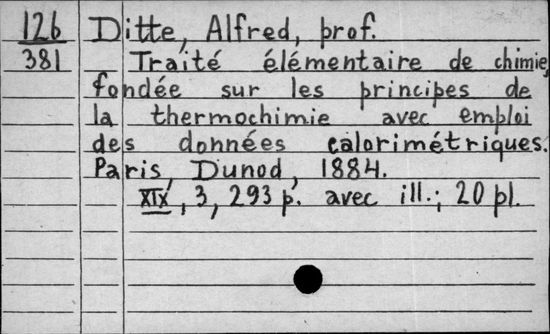 126 Ditte, Alfred, prof.
381 Traité élémentaire de chimie,
fondée sur les principes de
la thermochimie avec emploi
des données calorimétriques.
Paris, Dunod, 1884.
XIX, 3, 293 p. avec ill.; 20 pl.